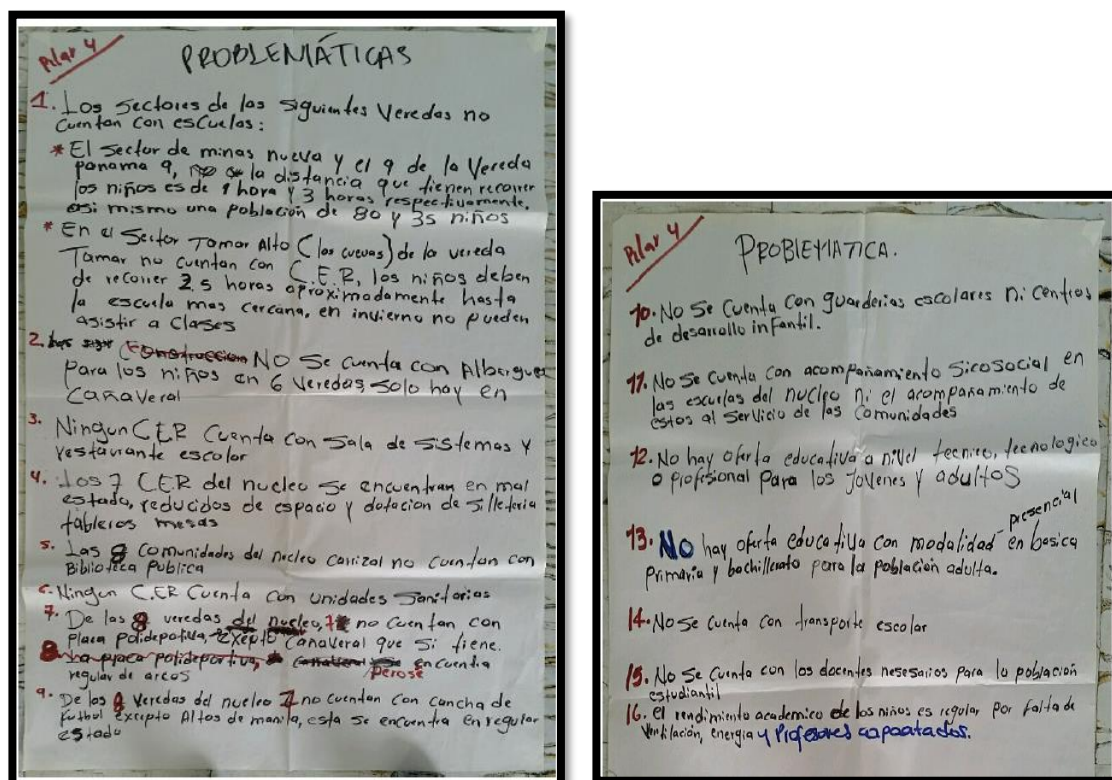 Pilar 4
PROBLEMÁTICAS
1. Los sectores de las siguientes Veredas no
cuentan con escuelas:
* El sector de minas nueva y el 9 de la Vereda
panama 9, la distancia que tienen recorrer
los niños es de 1 hora y 3 horas respectivamente,
asi mismo una población de 80 y 35 niños
* En el Sector Tamar Alto (las cuevas) de la vereda
Tamar no cuentan con C.E.R, los niños deben
de recorrer 2,5 horas aproximadamente hasta
la escuela mas cercana, en invierno no pueden
asistir a clases
2. Construccion NO Se cuenta con Albergues
para los niños en 6 Veredas, solo hay en
Cañaveral
3. Ningun CER Cuenta con Sala de Sistemas y
restaurante escolar
4. Los 7 CER del nucleo se encuentran en mal
estado, reducidos de espacio y dotacion de silleteria
tableros mesas
5. Las 8 comunidades del nucleo carrizal no cuentan con
Biblioteca Publica
6. Ningun C.ER Cuenta con unidades Sanitarias
7. De las 8 veredas del nucleo, 7 no cuentan con
placa polideportiva, Excepto Cañaveral que Si tiene.
8. La placa polideportiva, Cañaveral pero se encuentra
regular de arcos
9. De las 8 Veredas del nucleo 7 no cuentan con cancha de
futbol excepto Altos de manila, esta se encuentra en regular
estado
Pilar 4
PROBLEMATICA.
10. No Se Cuenta con guarderias escolares ni centros
de desarollo infantil.
11. No Se Cuenta con acompañamiento Sicosocial en
las escuelas del nucleo ni el acompañamiento de
estos al servicio de las Comunidades
12. No hay oferta educativa a nivel tecnico, tecnologico
o profesional para los jovenes y adultos
presencial
13. NO hay oferta educativa con modalidad en basica
primaria y bachillerato para la población adulta.
14. No se cuenta con transporte escolar
15. No Se Cuenta con los docentes nesesarios para la población
estudiantil
16. el rendimiento academico de los niños es regular por falta de
ventilación, energia y Profesores capacitados.